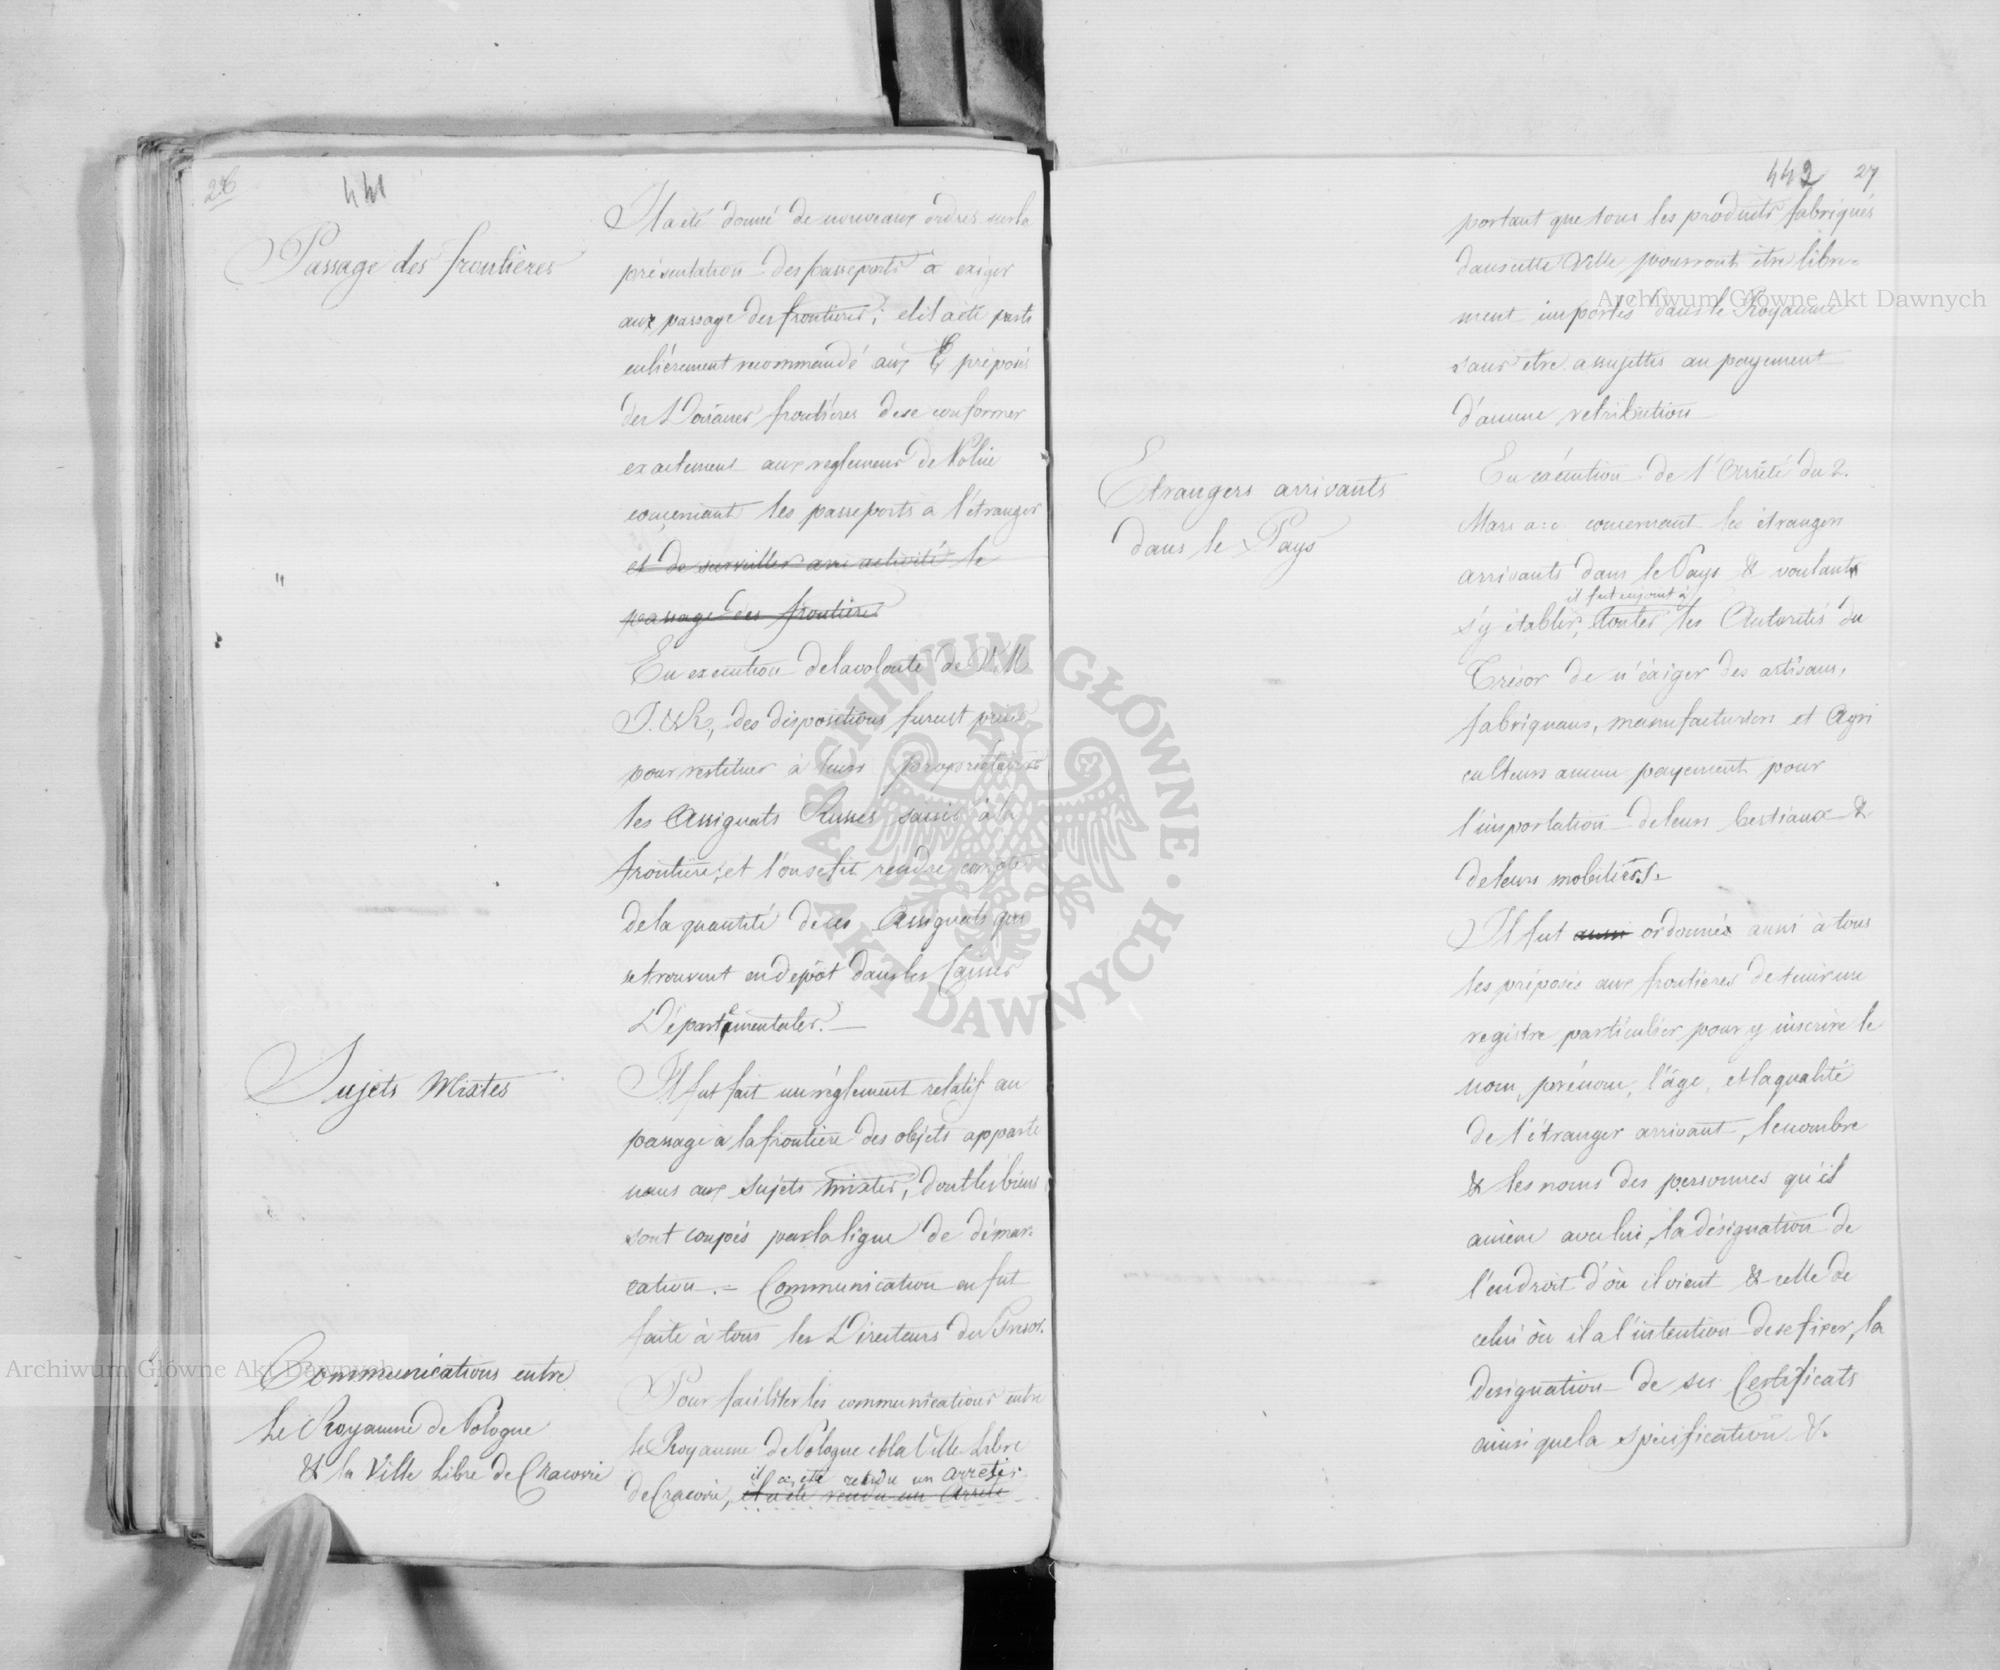 26
441
Passage des frontières
Il a été donné de nouveaux ordres sur la
présentation des passeports a exiger
aux passage des frontières; et il a été parti
culièrement recommandé aux préposés
des Douanes frontières de se conformer
exactement aux reglemens de Police
concernant les passeports a l'étranger
et de surveiller avec activité le
passage des frontières
En execution de la volonté de V. M.
I. & R., des dispositions furent prises
pour restituer à leurs propriétaires
les Assignats Russes saisis à la
frontière; et l'on se fit rendre compte
de la quantité de ces Assignats qui
se trouvent en depôt dans les Caisses
Départementales. —
Sujets Mixtes
Il fut fait un réglement relatif au
passage à la frontière des objets apparte
nans aux Sujets mixtes, dont les biens
sont coupés par la ligne de démar-
cation. — Communication en fut
faite à tous les Directeurs du Tresor.
Communications entre
le Royaume de Pologne
& la Ville Libre de Cracovie
Pour faciliter les communications entre
le Royaume de Pologne et la Ville Libre
il a été rendu un arrêté
de Cracovie, il a été rendu un Arrêté
442 27
portant que tous les produits fabriqués
dans cette Ville pourront être libre-
ment importés dans le Royaume
sans être assujettis au payement
d'aucune retribution
Etrangers arrivants
dans le Pays
En exécution de l'Arrêté du 2.
Mars a: c. concernant les étrangers
arrivants dans le Pays & voulant
il fut enjoint à
s'y établir, toutes les Autorités du
Trésor de n'éxiger des artisans,
fabriquans, manufacturiers et Agri
culteurs aucun payement pour
l'importation de leurs bestiaux &
de leurs mobiliers. —
Il fut aussi ordonné aussi à tous
les préposés aux frontières de tenir un
registre particulier pour y inscrire le
nom, prénom, l'âge, et la qualité
de l'étranger arrivant, le nombre
& les noms des personnes qu'il
amène avec lui, la désignation de
l'endroit d'où il vient & celle de
celui où il a l'intention de se fixer, la
designation de ses Certificats
ainsi que la spécification &.
Archiwum Główne Akt Dawnych
Archiwum Główne Akt Dawnych
ARCHIWUM GŁÓWNE · AKT DAWNYCH ·